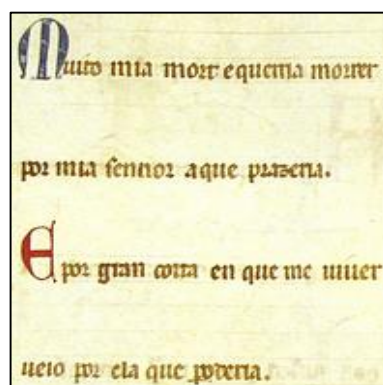 Muito mia mort e quenna morrer
por mia sennor a que prazeria.
E por gran coita en que me uiuer
ueio por ela que poderia.